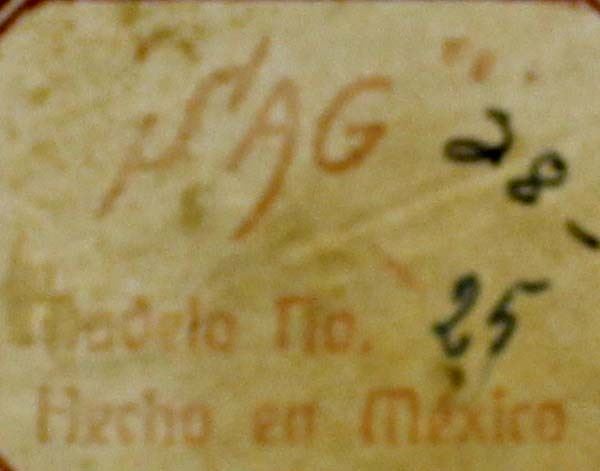 28-
Modelo No. 25
Hecho en México